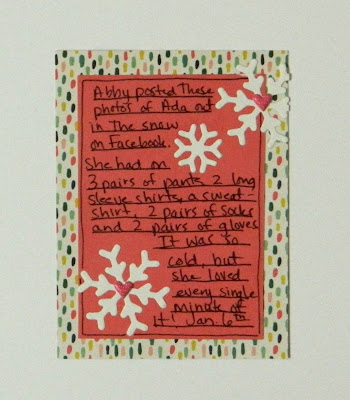 Abby posted These
photos of Ada out
in The snow
on Facebook.
She had on
3 pairs of pants, 2 long
sleeve shirts, a sweat-
shirt, 2 pairs of socks
and 2 pairs of gloves
It was so
cold, but
she loved
every single
minute of
it! Jan. 6th